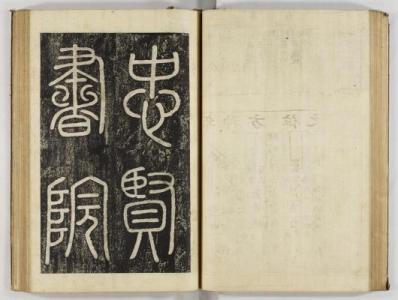 忠賢
書院